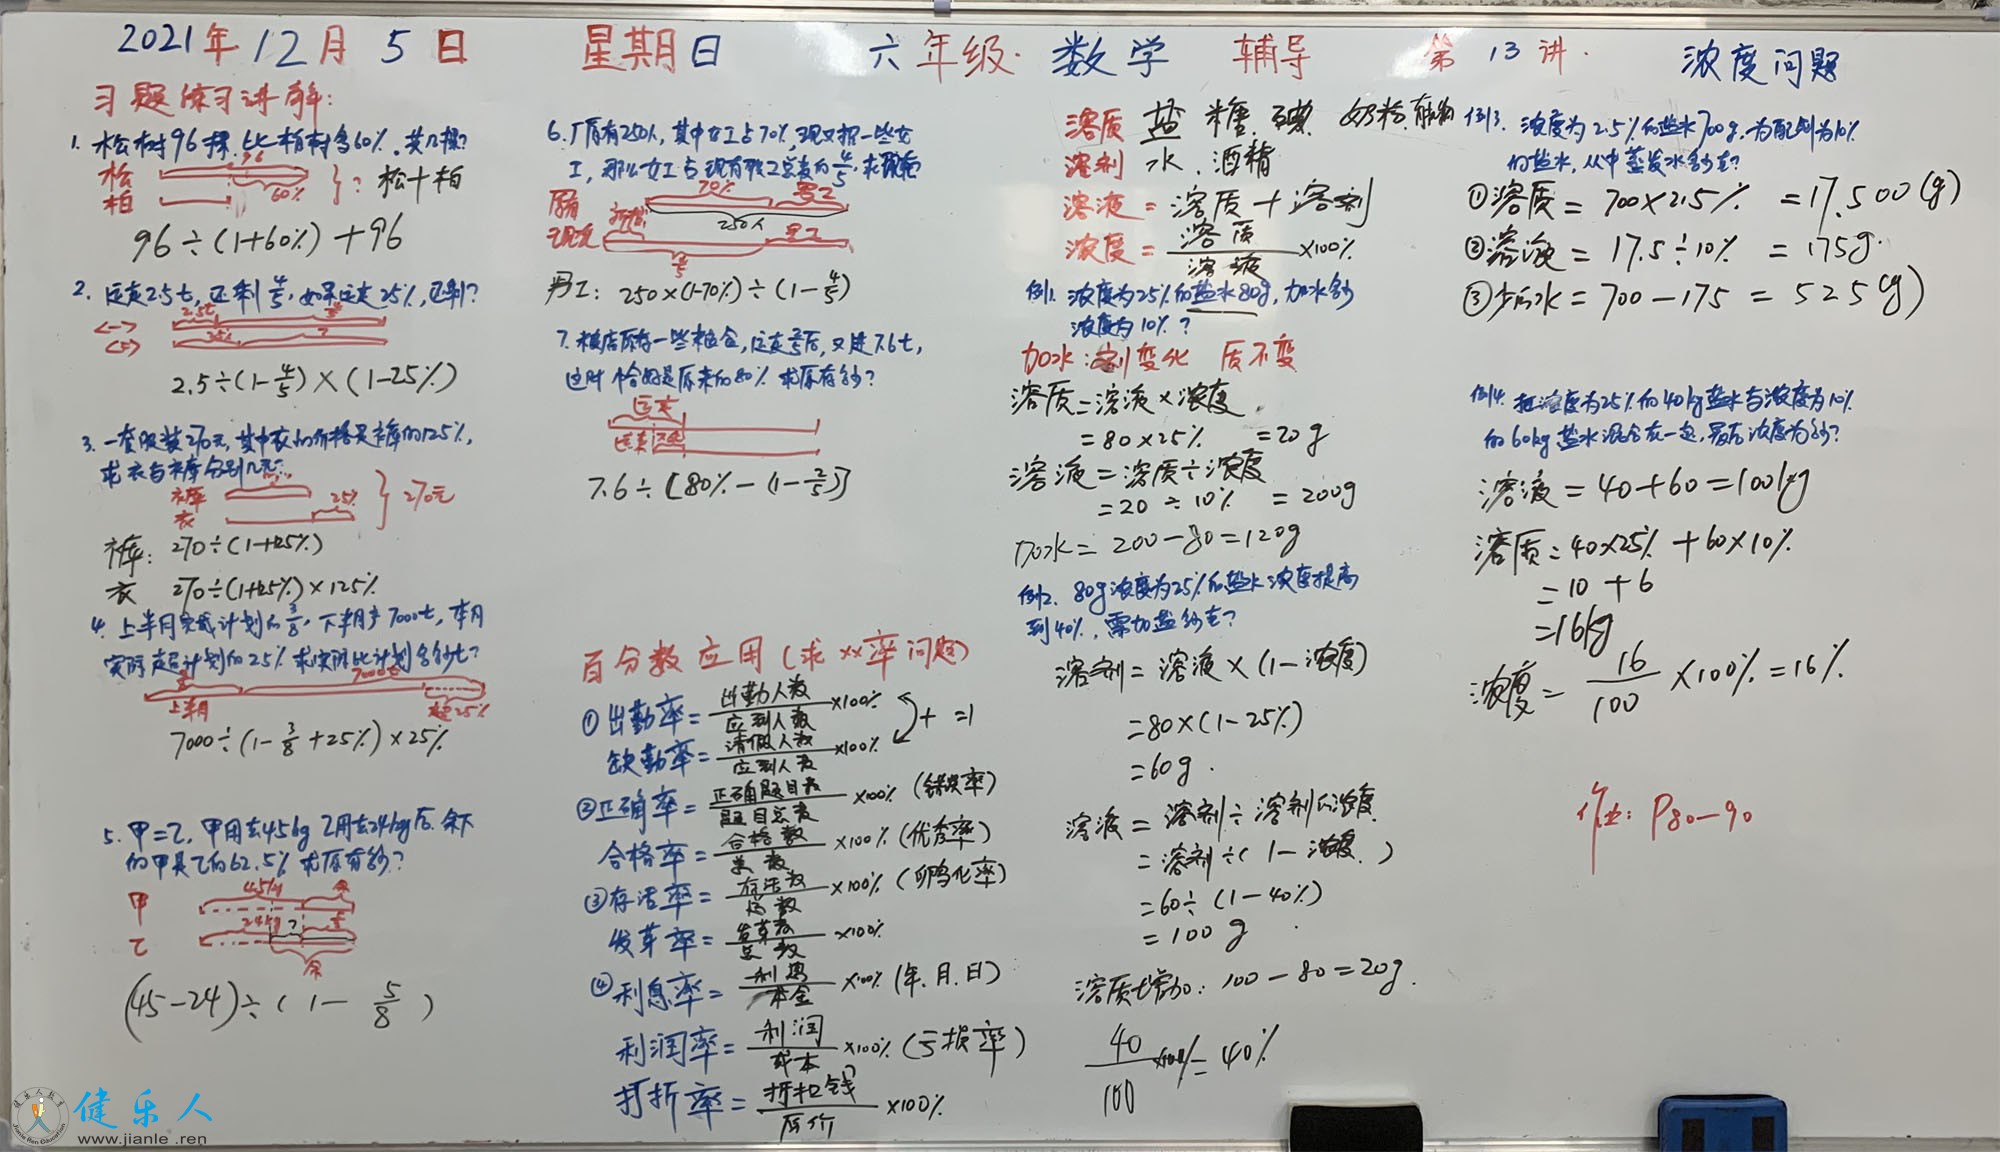 2021年12月5日 星期日 六年级 数学 辅导 第13讲 浓度问题
习题练习讲解:
1. 松树96棵,比柏树多60%,共几棵?
松 96
柏 60% }? 松+柏
96÷(1+60%)+96
2. 运走2.5t,还剩4/5,如果运走25%,还剩?
<一> 2.5t 4/5
<二> 25% ?
2.5÷(1-4/5)×(1-25%)
3. 一套服装270元,其中衣的价格是裤的125%,
求衣与裤分别几元?
裤 25% }270元
衣
裤: 270÷(1+125%)
衣 270÷(1+125%)×125%
4. 上半月完成计划的3/8,下半月产7000t,本月
实际超计划的25% 求实际比计划多多少t?
3/8 7000t
上半月 超25%
7000÷(1-3/8+25%)×25%
5. 甲=乙,甲用去45kg 乙用去24kg后,余下
的甲是乙的62.5% 求原有多少?
甲 45kg 余
乙 24kg ? 5/8
余
(45-24)÷(1-5/8)
6. 厂原有250人,其中女工占70%,现又招一些女
工,那么女工占现有职工总数的4/5,求现有
70% 男工
原有 新招 250人
现有 男工
4/5
男工: 250×(1-70%)÷(1-4/5)
7. 粮店原存一些粮仓,运走2/5后,又进7.6t,
这时恰好是原来的80% 求原存多少?
运走
7.6÷[80%-(1-2/5)]
百分数应用(求××率问题)
①出勤率=出勤人数/应到人数×100%
+ =1
缺勤率=请假人数/应到人数×100%
②正确率=正确题目数/题目总数×100%(错误率)
合格率=合格数/总数×100%(优秀率)
③存活率=存活数/总数×100%(孵化率)
发芽率=发芽数/总数×100%
④利息率=利息/本金×100%(年.月.日)
利润率=利润/成本×100%(亏损率)
打折率=折扣钱/原价×100%
溶质 盐 糖 碘 奶粉
溶剂 水.酒精
溶液=溶质+溶剂
浓度=溶质/溶液×100%
例1. 浓度为25%的盐水80g,加水多少
浓度为10%?
加水:剂变化 质不变
溶质=溶液×浓度
=80×25% =20g
溶液=溶质÷浓度
=20÷10% =200g
加水=200-80=120g
例2. 80g浓度为25%的盐水浓度提高
到40%,需加盐多少克?
溶剂=溶液×(1-浓度)
=80×(1-25%)
=60g.
溶液=溶剂÷溶剂的浓度
=溶剂÷(1-浓度)
=60÷(1-40%)
=100g
溶质增加: 100-80=20g.
40/100×100%=40%
例3. 浓度为2.5%的盐水700g,为配制为10%
的盐水,从中蒸发水多少克?
①溶质=700×2.5% =17.500(g)
②溶液=17.5÷10% =175g.
③少的水=700-175=525(g)
例4. 把浓度为25%的40kg盐水与浓度为10%
的60kg盐水混合在一起,最后浓度为多少?
溶液=40+60=100kg
溶质=40×25%+60×10%
=10+6
=16kg
浓度=16/100×100%=16%
作业: P80-90
健乐人
www.jianle.ren